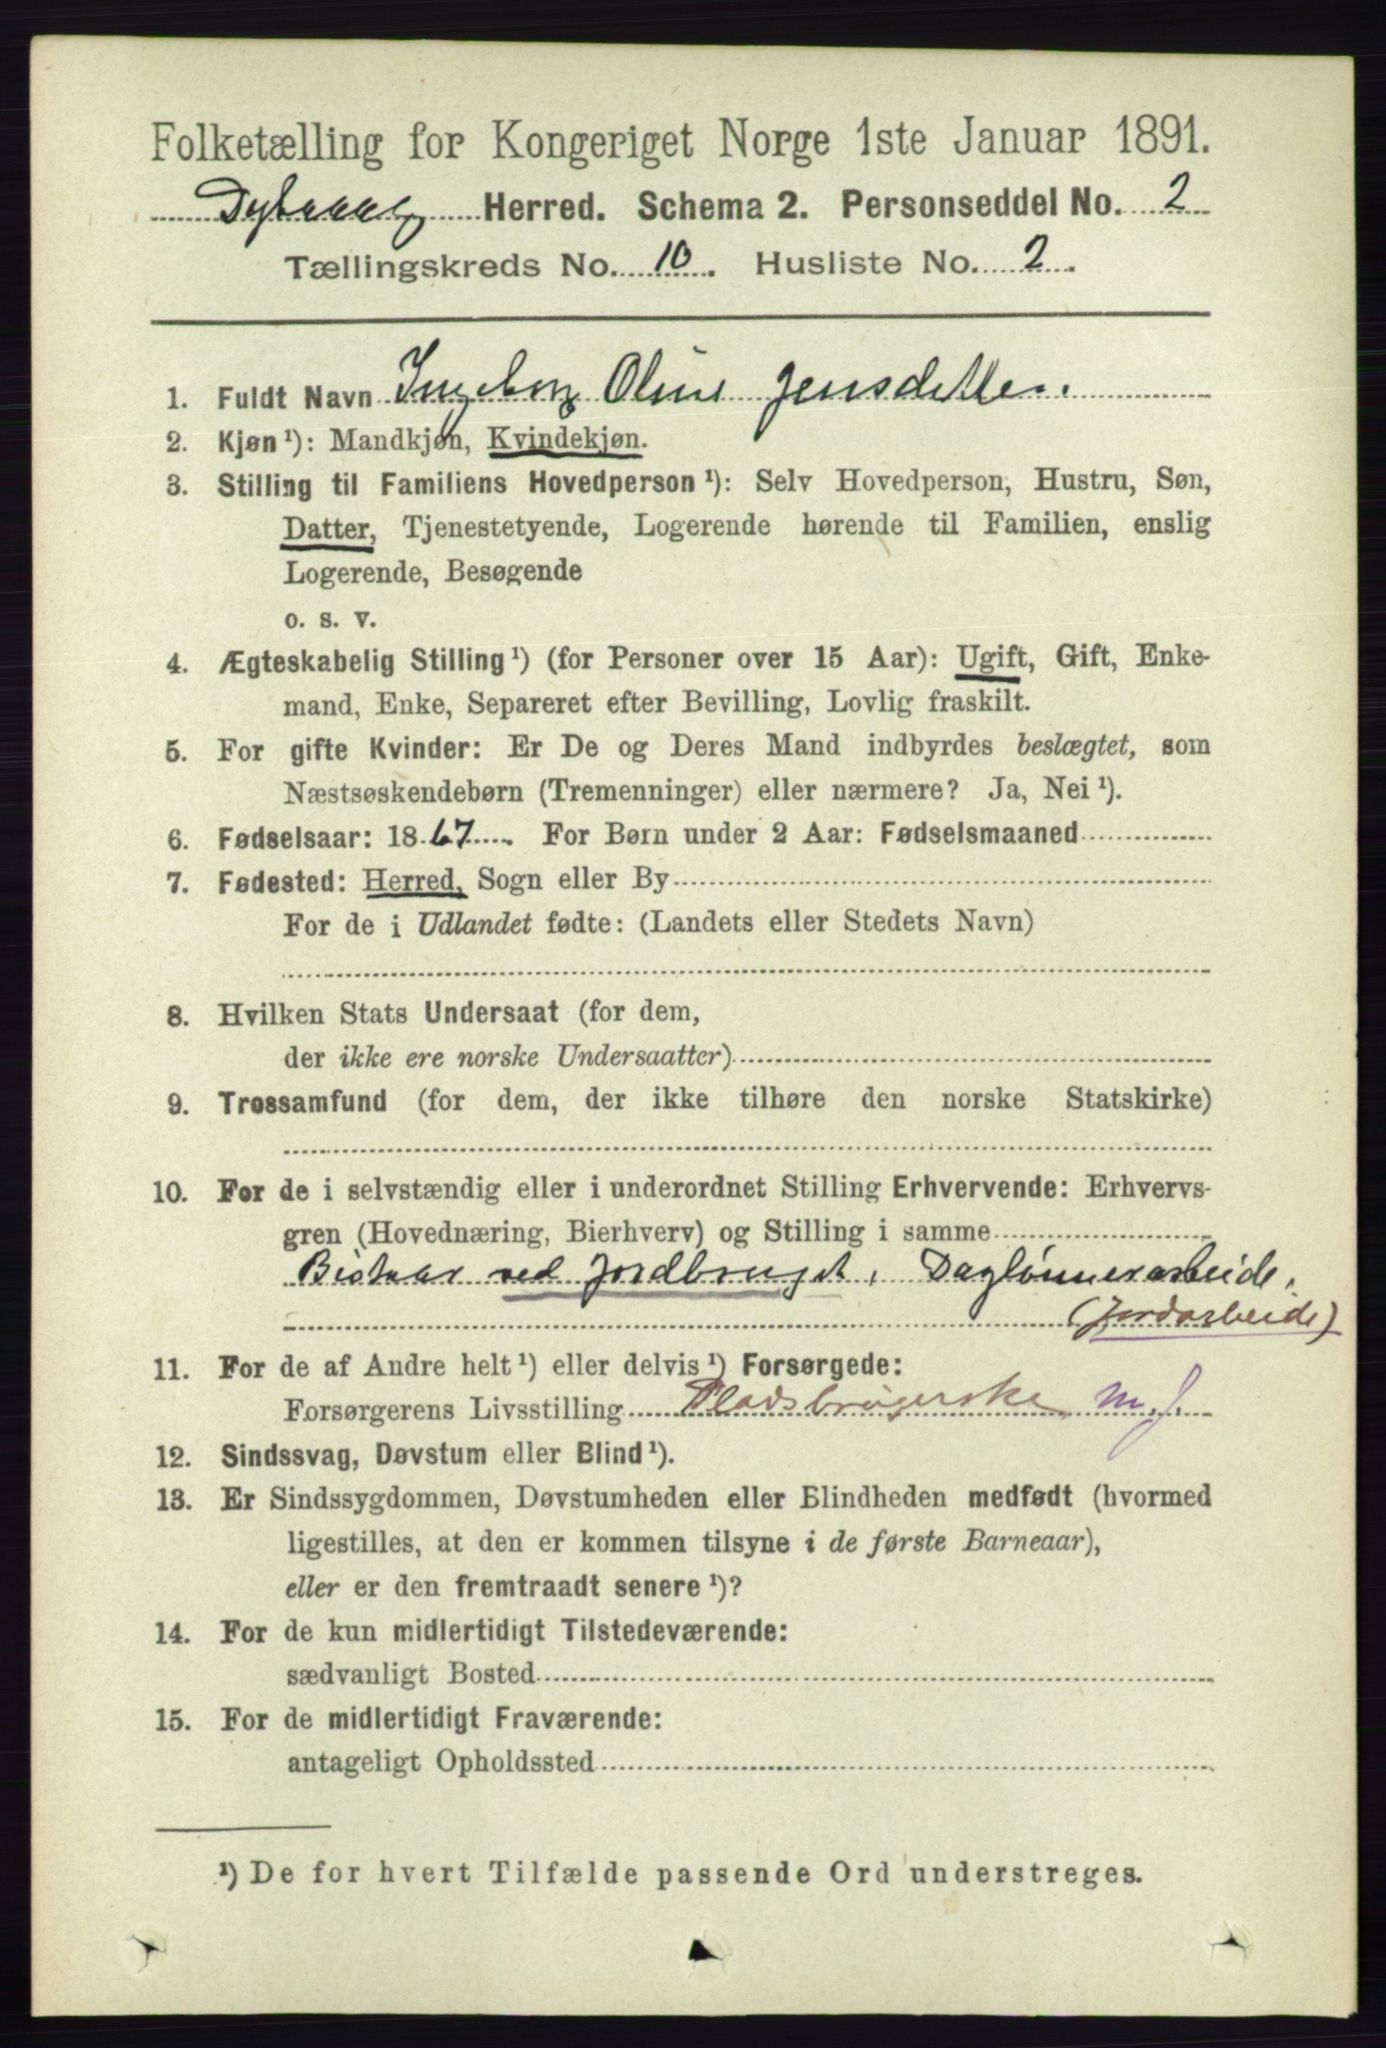 Folketælling for Kongeriget Norge 1ste Januar 1891.
Dybvaag Herred. Schema 2. Personseddel No. 2
Tællingskreds No. 10. Husliste No. 2.
1. Fuldt Navn Ingeborg Oline Jensdatter.
2. Kjøn¹): Mandkjøn, Kvindekjøn.
3. Stilling til Familiens Hovedperson¹): Selv Hovedperson, Hustru, Søn,
Datter, Tjenestetyende, Logerende hørende til Familien, enslig
Logerende, Besøgende
o. s. v.
4. Ægteskabelig Stilling¹) (for Personer over 15 Aar): Ugift, Gift, Enke-
mand, Enke, Separeret efter Bevilling, Lovlig fraskilt.
5. For gifte Kvinder: Er De og Deres Mand indbyrdes beslægtet, som
Næstsøskendebørn (Tremenninger) eller nærmere? Ja, Nei¹).
6. Fødselsaar: 1867. For Børn under 2 Aar: Fødselsmaaned
7. Fødested: Herred, Sogn eller By
For de i Udlandet fødte: (Landets eller Stedets Navn)
8. Hvilken Stats Undersaat (for dem,
der ikke ere norske Undersaatter)
9. Trossamfund (for dem, der ikke tilhøre den norske Statskirke)
10. For de i selvstændig eller i underordnet Stilling Erhvervende: Erhvervs-
gren (Hovednæring, Bierhverv) og Stilling i samme
Bistaar ved Jordbruget, Daglønnerarbeide,
(Jordarbeide)
11. For de af Andre helt¹) eller delvis¹) Forsørgede:
Forsørgerens Livsstilling Pladsbrugerske m. J.
12. Sindssvag, Døvstum eller Blind¹).
13. Er Sindssygdommen, Døvstumheden eller Blindheden medfødt (hvormed
ligestilles, at den er kommen tilsyne i de første Barneaar),
eller er den fremtraadt senere¹)?
14. For de kun midlertidigt Tilstedeværende:
sædvanligt Bosted
15. For de midlertidigt Fraværende:
antageligt Opholdssted
¹) De for hvert Tilfælde passende Ord understreges.